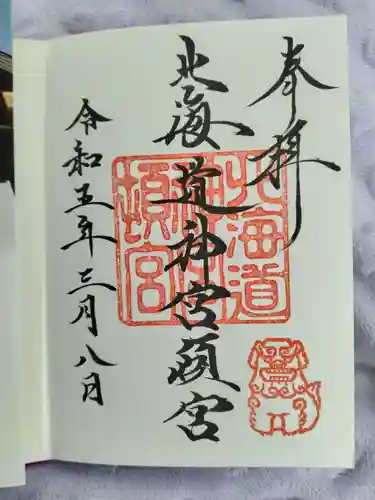 奉拝
北海道神宮頓宮
令和五年三月八日
北海道
神宮
頓宮